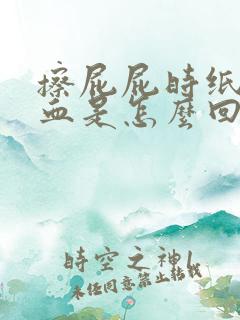 擦屁屁时纸
血是怎么回
時空之神1
未经同意禁止转载